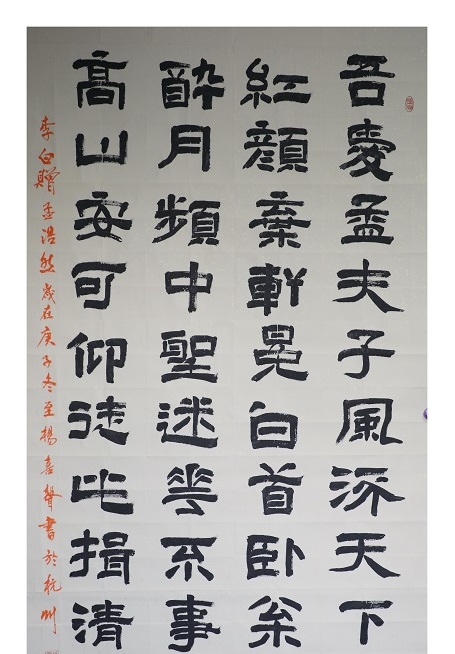 吾愛孟夫子風流天下
紅顏棄軒冕白首臥枀
醉月頻中聖迷花不事
高山安可仰徒此揖清
李白贈孟浩然歲在庚子冬至楊喜聲書於杭州